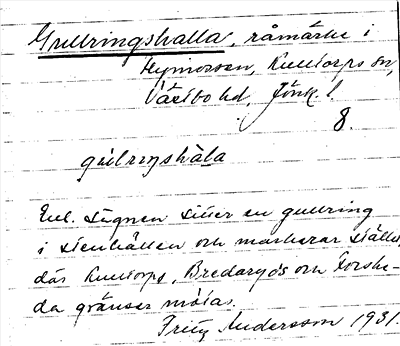 Gullringshalla, råmärke i
Hymossen, Kulltorps sn,
Västbo hd, Jönk. l.
8.
gúlryshàla
Enl. sägnen sitter en gullring
i stenhällen och markerar stället,
där Kulltorps, Bredaryds och Forshe-
da gränser mötas.
Fritz Andersson 1931.